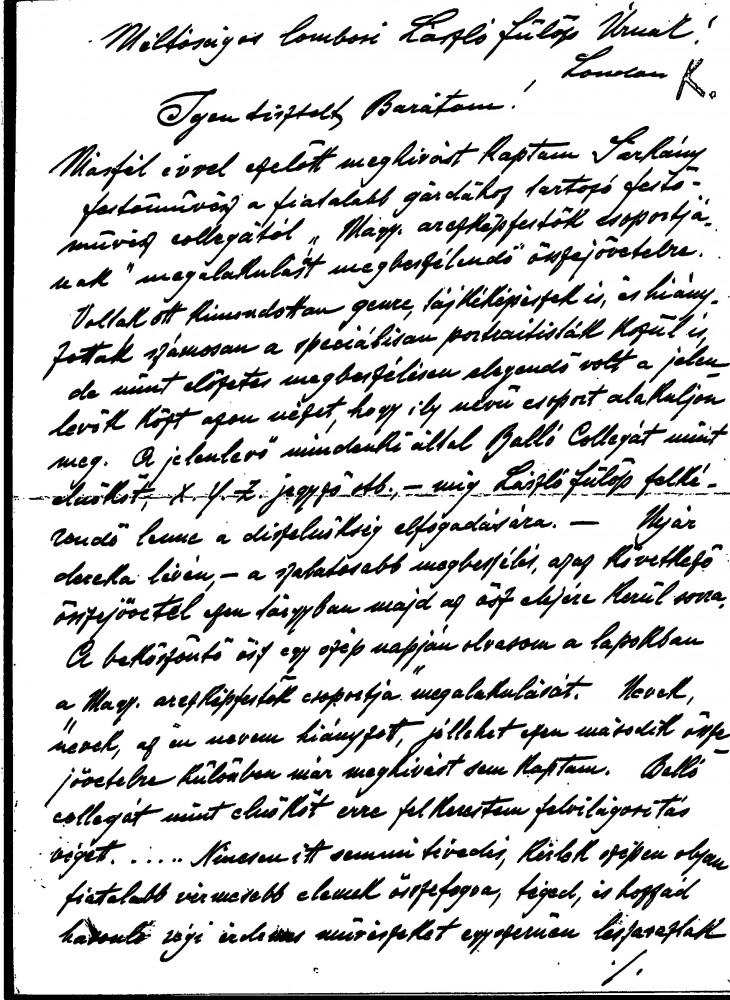 Méltóságos lombosi László Fülöp Úrnak!
London
K.
Igen tisztelt Barátom!
Másfél évvel ezelőtt meghivást kaptam Sarkány
festőművész a fiatalabb gárdához tartozó festő-
művész collegától „Magy. arczképfestők csoportjá-
nak" megalakulást megbeszélendő összejövetelre.
Voltak ott kimondottan genre, tájkéképészek is, és hiány-
zottak számosan a speciálisan portraitisták közül is,
de mint előzetes megbeszélésen elegendő volt a jelen
levők közt azon nézet, hogy ily nevű csoport alakuljon
meg. A jelenlevő mindenki által Balló Collegát mint
elnököt, X. Y. Z. jegyző stb., – mig László Fülöp felké-
rendő lenne a diszelnökség elfogadására. – Nyár
dereka lévén, – a szabatosabb megbeszélés, azaz következő
összejövetel ezen tárgyban majd az ősz elejére kerül sorra.
A beköszöntő ősz egy szép napján olvasom a lapokban
a „Magy. arczképfestők csoportja" megalakulását. Nevek,
nevek, az én nevem hiányzott, jóllehet ezen második össze
jövetelre különben már meghivást sem kaptam. Balló
collegát mint elnököt erre felkerestem felvilágositás
végett. ..... Nincsen itt semmi tévedés, kérlek szépen olyan
fiatalabb vérmesebb elemek összefogva, téged, és hozzád
hasonló régi érdemes művészeket egyszerüen leszavaztak
./.